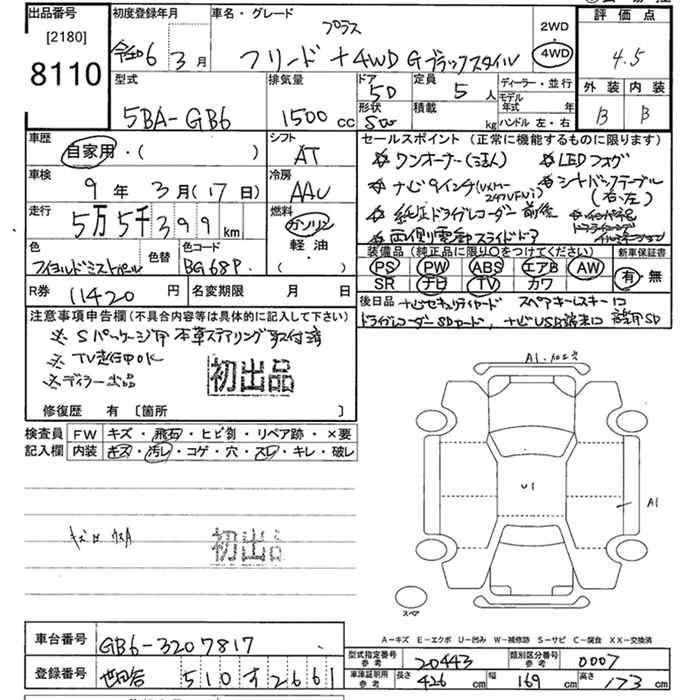 出品番号
[2180]
8110
初度登録年月
令和6年3月
車名・グレード
プラス
フリード+4WD Gブラックスタイル
2WD
4WD
評価点
4.5
外装 内装
B B
型式
5BA-GB6
排気量
1500cc
ドア
5D
定員
5人
形状
積載
kg
ディーラー・並行
モデル年式 年
ハンドル 左・右
車歴
自家用・( )
シフト
AT
車検
9年3月(17日)
冷房
AAC
走行
5万5千399km
燃料
ガソリン
軽油
( )
色
色替
色コード
BG68P
R券
11420円
名変期限 月 日
セールスポイント(正常に機能するものに限ります)
ワンオーナー
LEDフォグ
ナビ9インチ(VXM-247VFVi)
シートバックテーブル(右・左)
純正ドライブレコーダー前後
両側電動スライドドア
装備品(純正品に限り○をつけてください)
新車保証書
PS PW ABS エアB AW
SR ナビ TV カワ
有・無
後日品
ナビセキュリティカード スペアキーレスキー1コ
ドライブレコーダーSDカード、ナビUSB端末1コ
注意事項申告欄(不具合内容等は具体的に記入して下さい)
※Sパッケージ用本革ステアリング取付済
※TV走行中OK
※ディラー出品
初出品
修復歴 有〔箇所 〕
検査員記入欄
FW キズ・飛石・ヒビ割・リペア跡・×要
内装 キズ・汚レ・コゲ・穴・スレ・キレ・破レ
初出品
A1
U1
A1
スペア
A-キズ E-エクボ U-凹み W-補修跡 S-サビ C-腐食 XX-交換済
車台番号
GB6-3207817
登録番号
世田谷510す2661
型式指定番号
参考
20443
類別区分番号
参考
0007
車庫証明用
参考
長さ 426cm
幅 169cm
高さ 173cm